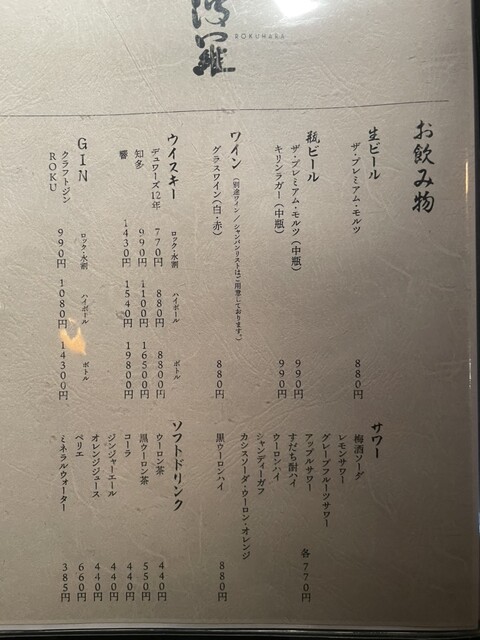 波羅
ROKUHARA
お飲み物
生ビール
ザ・プレミアム・モルツ 880円
瓶ビール
ザ・プレミアム・モルツ(中瓶) 990円
キリンラガー(中瓶) 990円
ワイン(別途ワイン/シャンパンリストはご用意しております。)
グラスワイン(白・赤) 880円
ウイスキー ロック・水割 ハイボール ボトル
デュワーズ12年 770円 880円 8800円
知多 990円 1100円 16500円
響 1430円 1540円 19800円
GIN ロック・水割 ハイボール ボトル
クラフトジン
ROKU 990円 1080円 14300円
サワー
梅酒ソーダ
レモンサワー
グレープフルーツサワー
アップルサワー 各770円
すだち酎ハイ
ウーロンハイ
シャンディーガフ
カシスソーダ・ウーロン・オレンジ
黒ウーロンハイ 880円
ソフトドリンク
ウーロン茶 440円
黒ウーロン茶 550円
コーラ 440円
ジンジャーエール 440円
オレンジジュース 440円
ペリエ 660円
ミネラルウォーター 385円